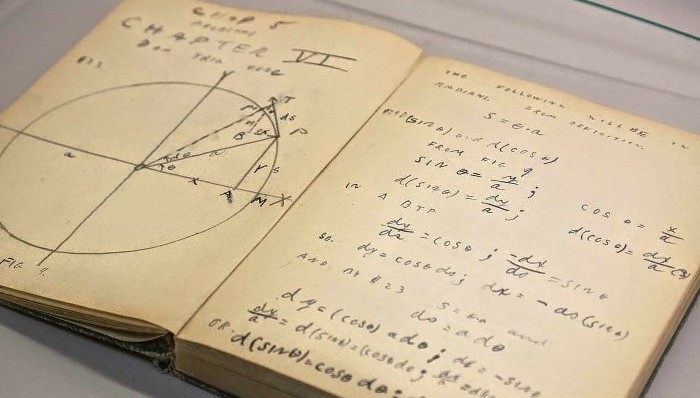 CHAP 5
CHAPTER VI
#23
T
ds
P
B
a
a
dθ
θ
x
y
s
A
M
X
Y
FIG 9.
THE FOLLOWING WILL BE IN
RADIANS FROM DEFINITION
S = θ.a
d(SINθ) and d(COSθ)
FROM FIG 9
SIN θ = y/a ; COS θ = x/a
d(SINθ) = dy/a ; d(COSθ) = dx/a
IN A BTP
dy/ds = COSθ ; -dx/ds = SINθ
SO. dy = COSθ ds ; dx = - ds (SINθ)
AND BY #23 S = θ.a and
ds = a dθ
dy = (COSθ) a dθ ; dx = - SINθ
dy/a = d(SINθ) = COSθ dθ ; dx/a =
OR. d(SINθ) = COSθ dθ ;